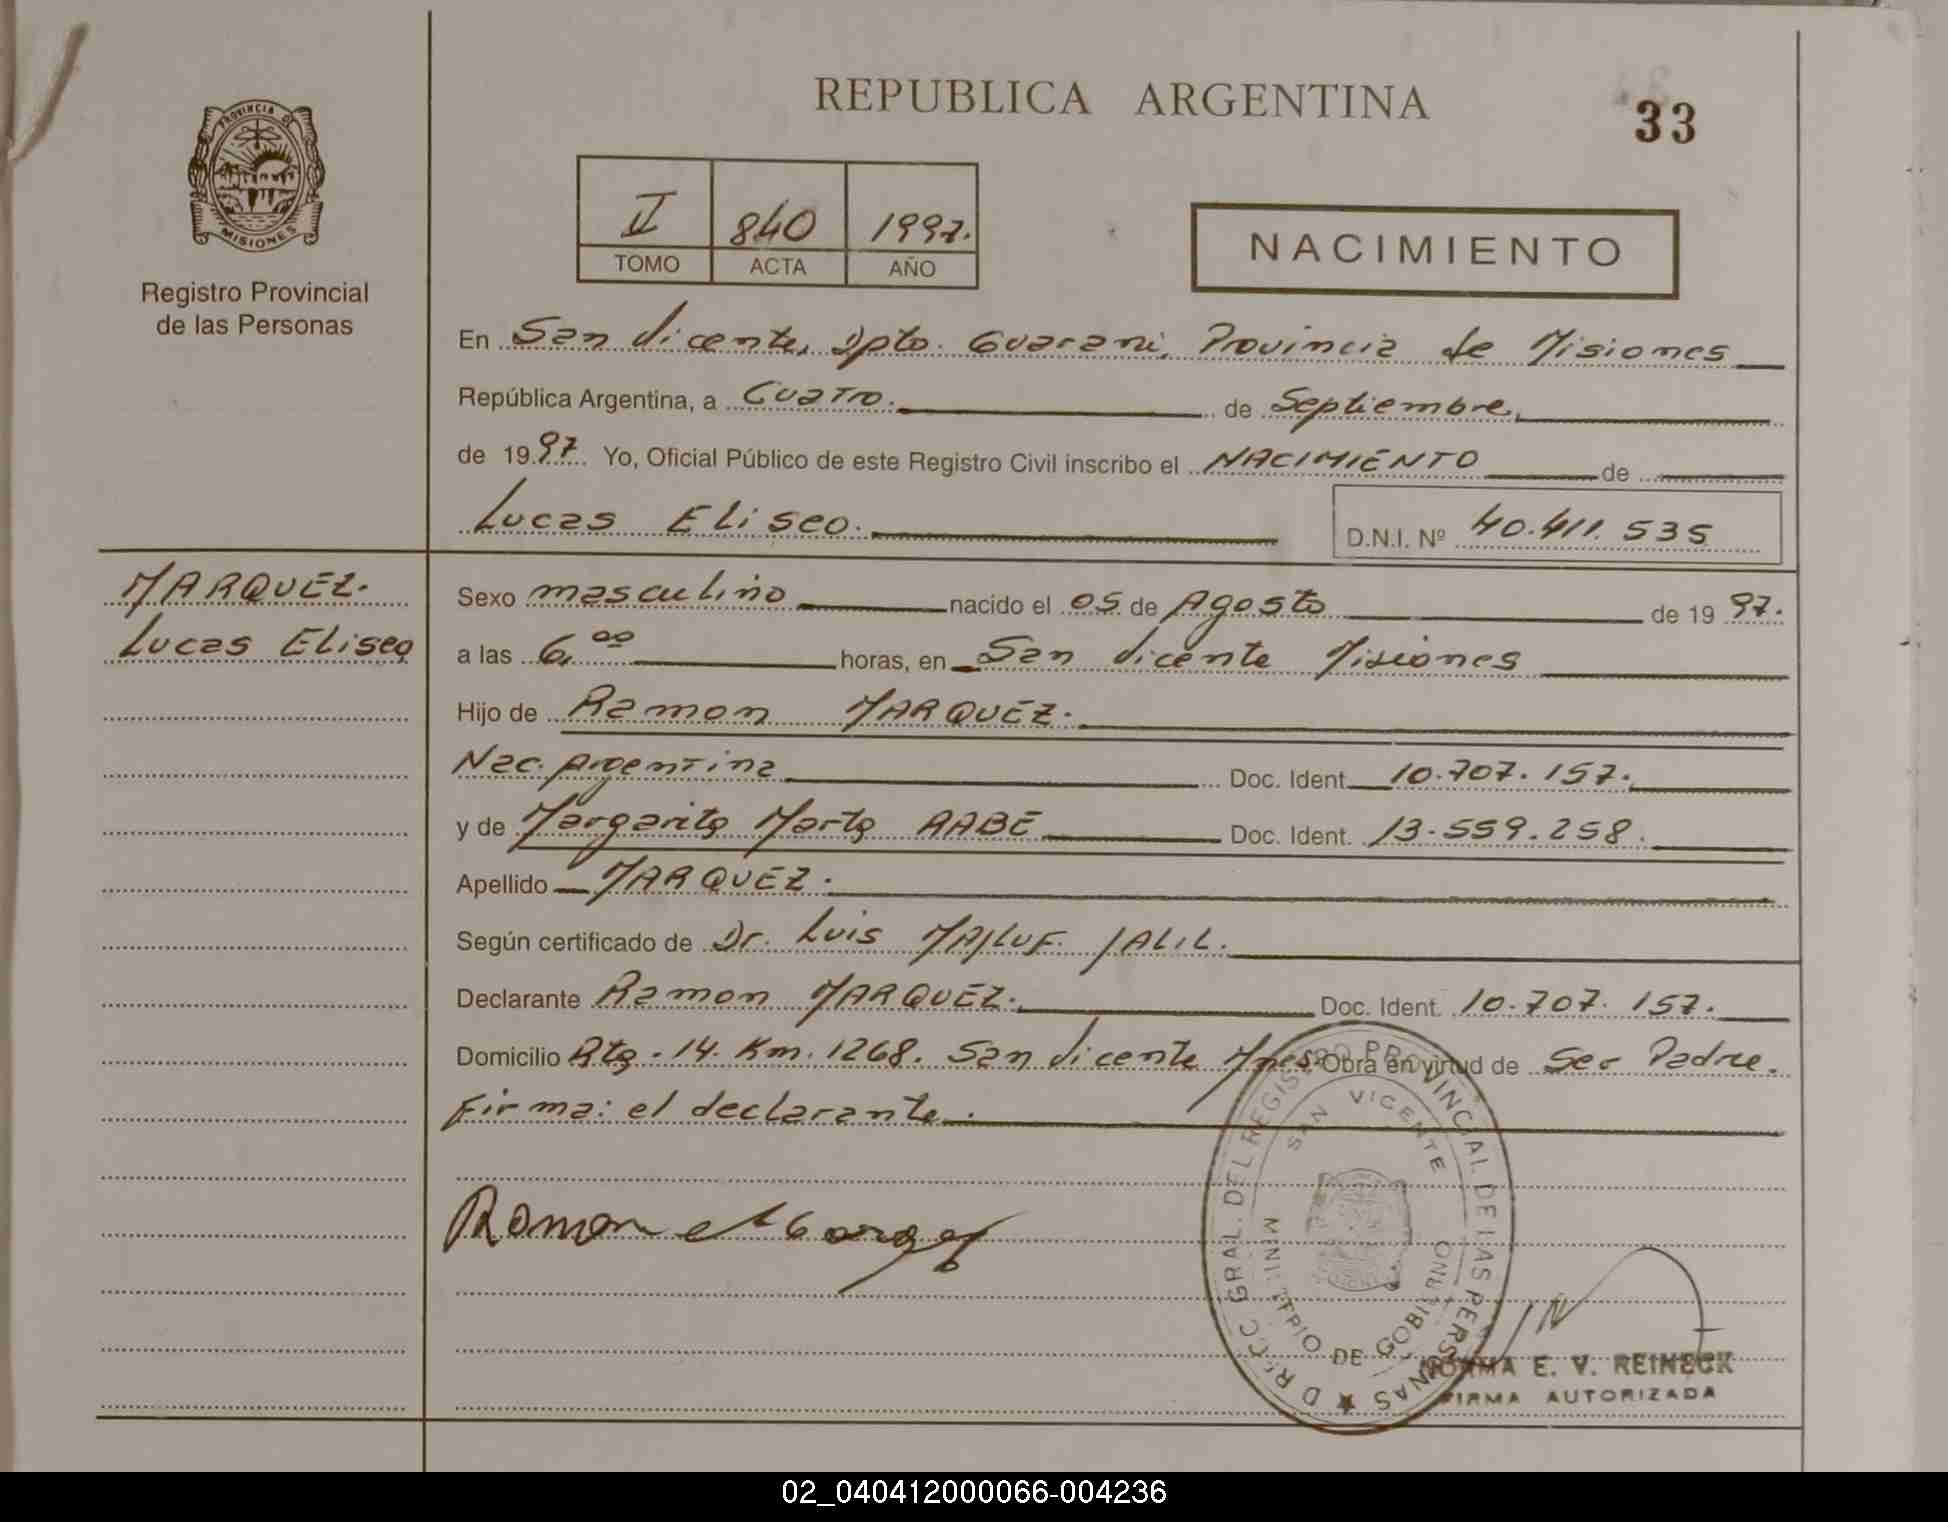 REPUBLICA ARGENTINA
33
PROVINCIA DE
MISIONES
Registro Provincial
de las Personas
II 840 1997.
TOMO ACTA AÑO
NACIMIENTO
En San Vicente, Dpto. Guarani, Provincia de Misiones
República Argentina, a Cuatro. de Septiembre,
de 1997 Yo, Oficial Público de este Registro Civil inscribo el NACIMIENTO de
Lucas Eliseo. D.N.I. Nº 40.411.535
MARQUEZ.
Lucas Eliseo
Sexo masculino nacido el 05 de Agosto de 1997.
a las 6,00 horas, en San Vicente Misiones
Hijo de Ramon MARQUEZ.
Nac. Argentina Doc. Ident. 10.707.157.
y de Margarita Marta AABE Doc. Ident. 13.559.258.
Apellido MARQUEZ.
Según certificado de Dr. Luis MAJLUF JALIL.
Declarante Ramon MARQUEZ. Doc. Ident. 10.707.157.
Domicilio Rta. 14. Km. 1268. San Vicente Mnes. Obra en virtud de Ser Padre.
Firma: el declarante.
Ramon
DIRECC GRAL. DEL REGISTRO PROVINCIAL DE LAS PERSONAS
SAN VICENTE
MINISTERIO DE GOBIERNO
NORMA E. V. REINECK
FIRMA AUTORIZADA
02_040412000066-004236